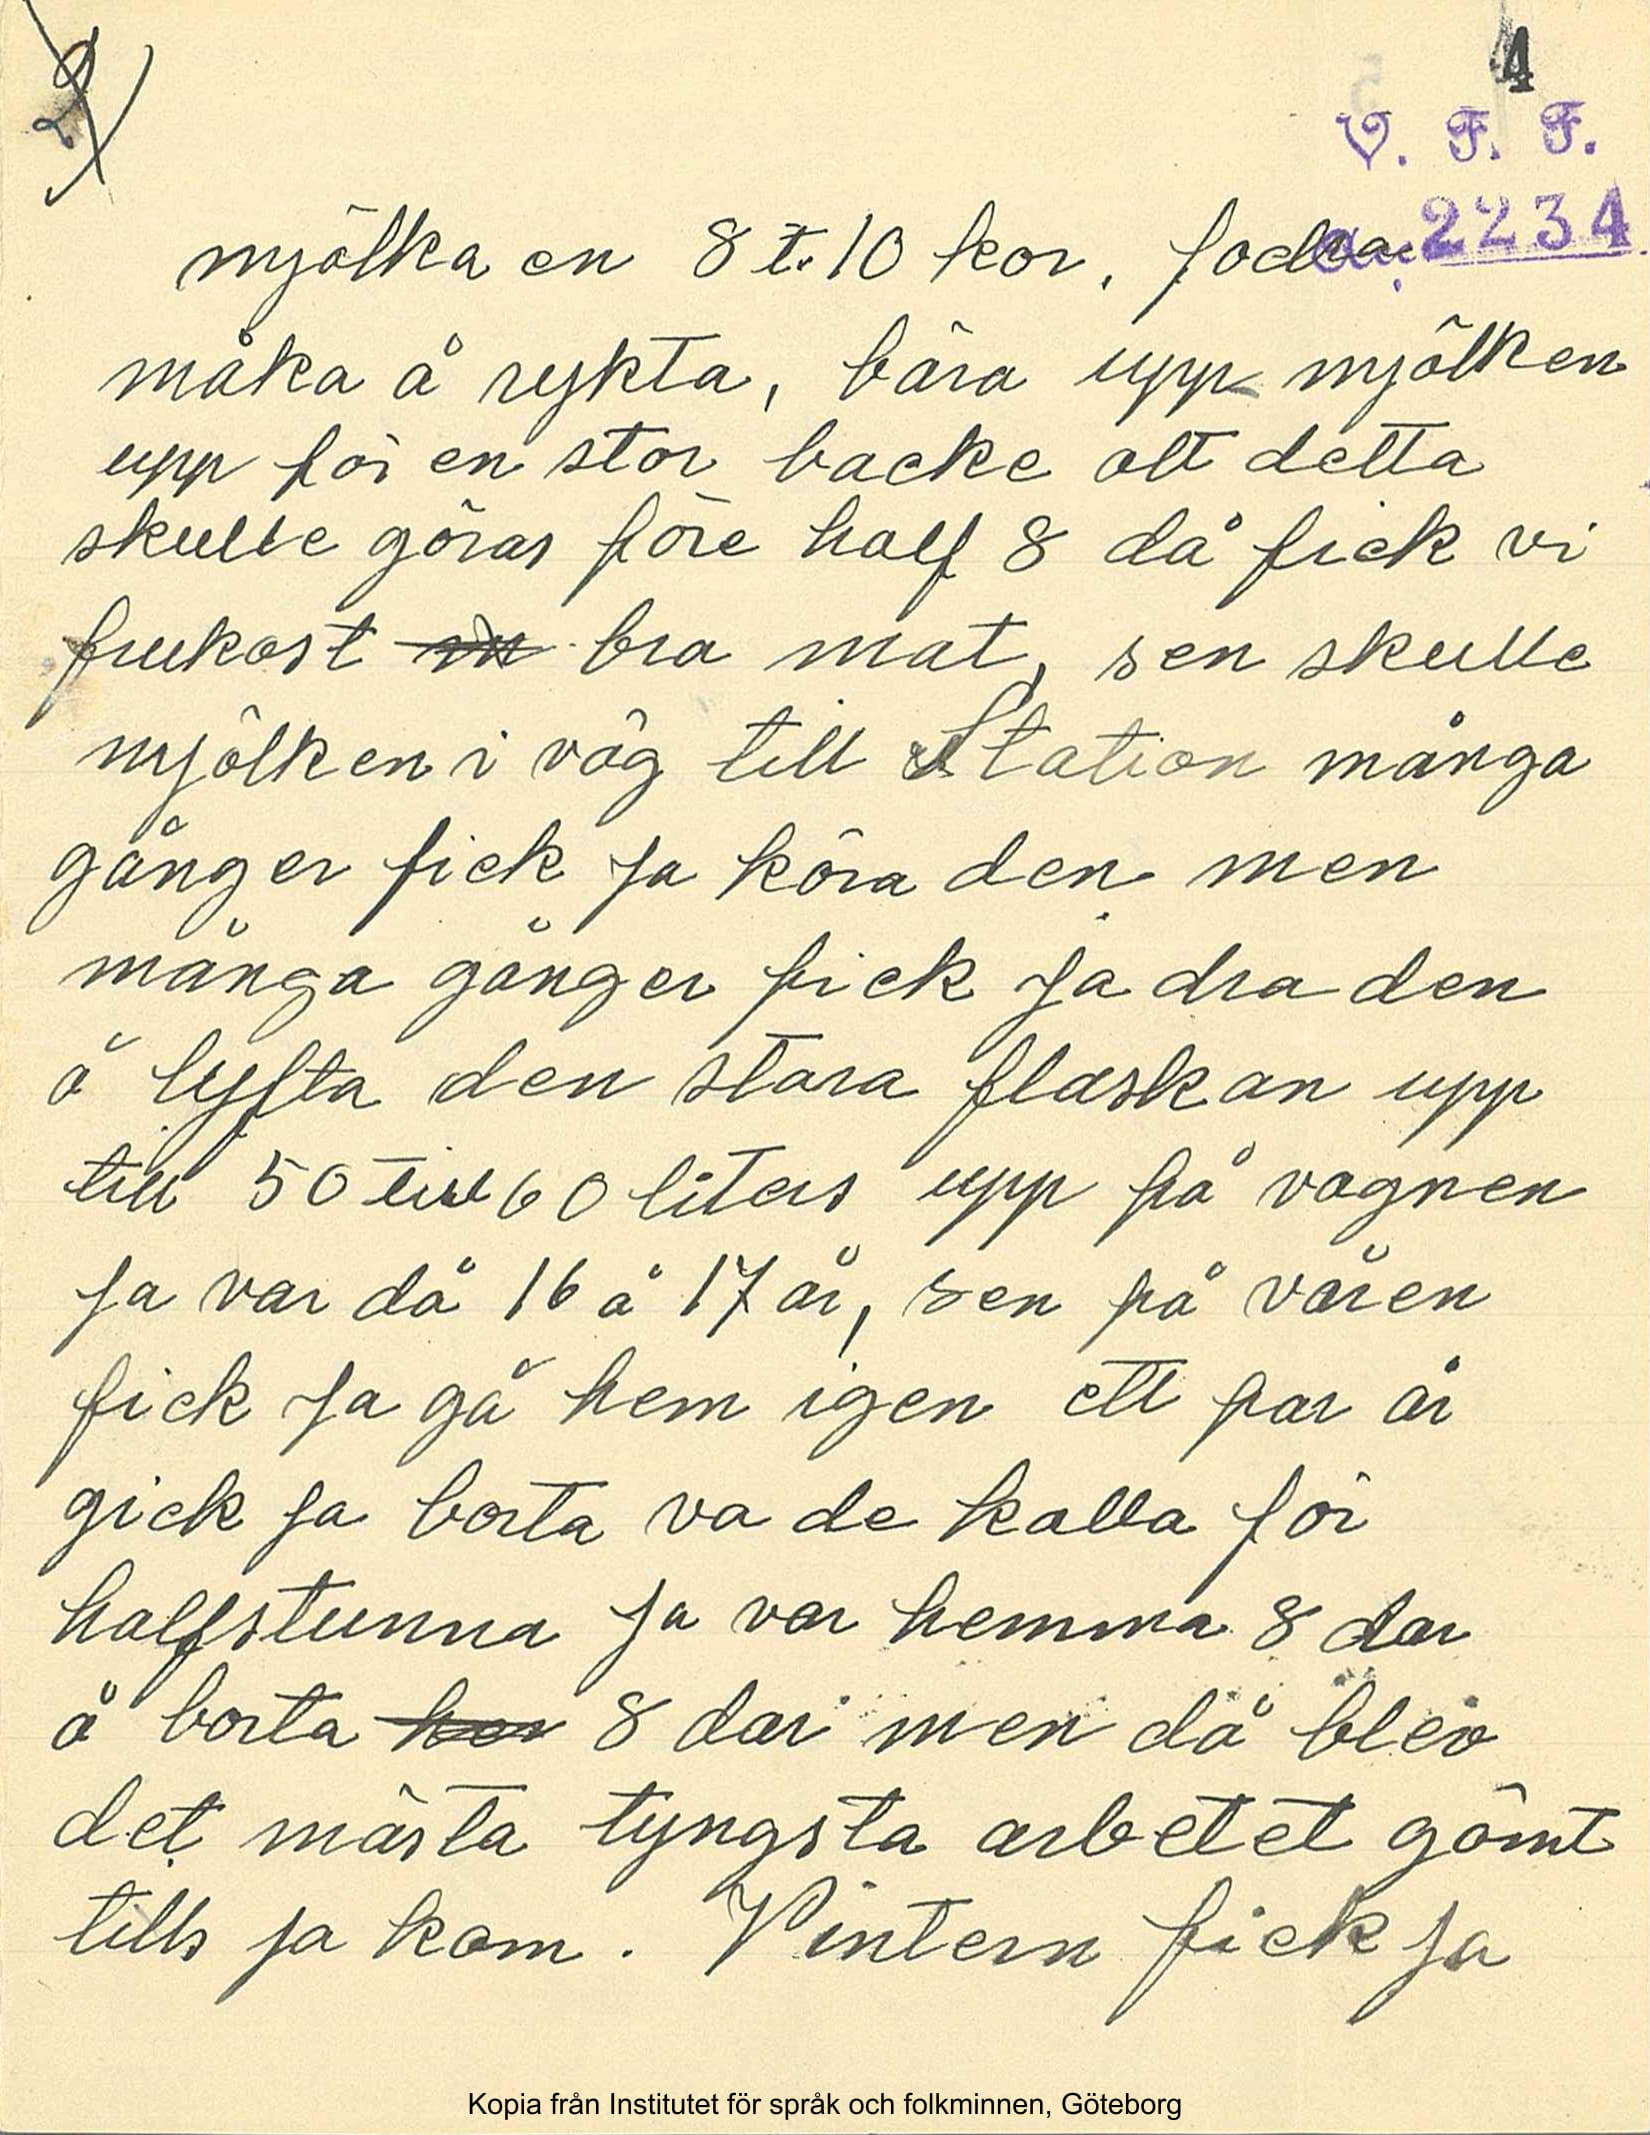 2)
4
V. F. F.
a. 2234
mjölka en 8 t. 10 kor, fodra
måka å rykta, bära upp mjölken
upp för en stor backe alt detta
skulle göras före half 8 då fick vi
frukost bra mat, sen skulle
mjölken i väg till Station många
gånger fick ja köra den men
många gånger fick ja dra den
å lyfta den stora flaskan upp
till 50 till 60 liters upp på vagnen
ja var då 16 å 17 år, sen på våren
fick ja gå hem igen ett par år
gick ja borta va de kalla för
halfstunna ja var hemma 8 dar
å borta 8 dar men då blev
det mästa tyngsta arbetet gömt
tills ja kom. Vintern fick ja
Kopia från Institutet för språk och folkminnen, Göteborg